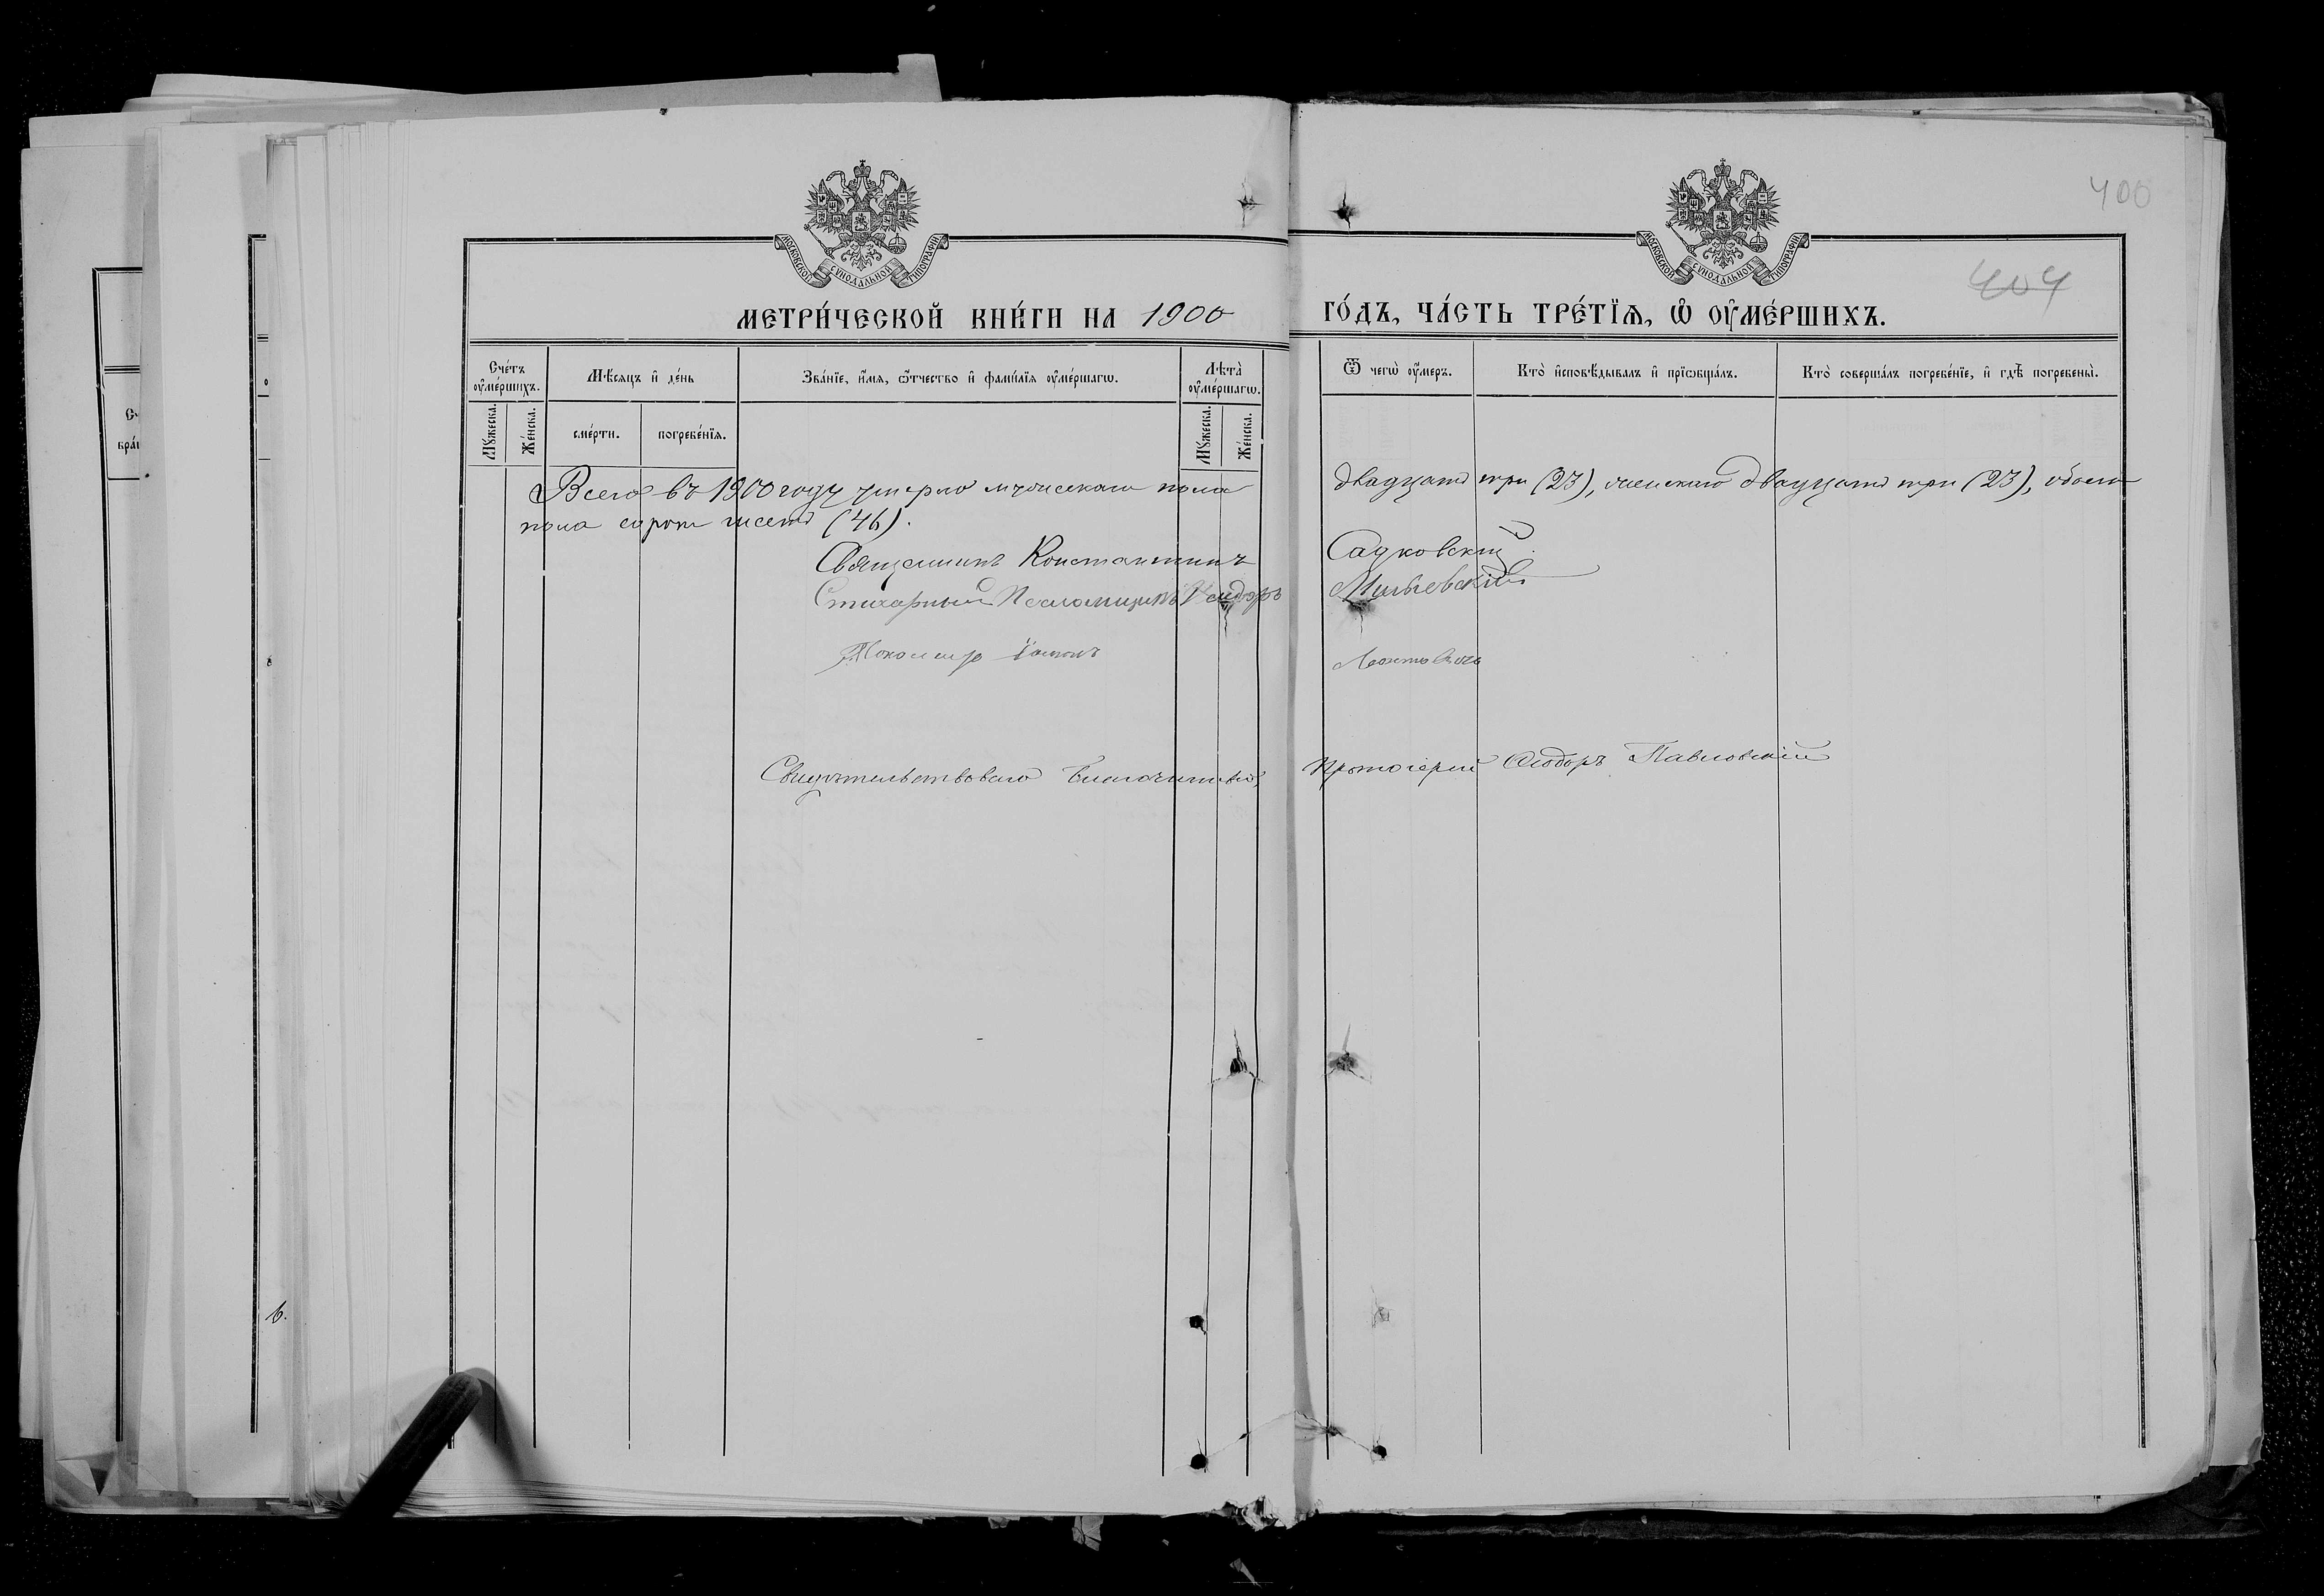 400
404
МОСКОВСКОЙ СѴНОДАЛЬНОЙ ТИПОГРАФІИ
МОСКОВСКОЙ СѴНОДАЛЬНОЙ ТИПОГРАФІИ
МЕТРИ́ЧЕСКОЙ КНИ́ГИ НА 1900 ГО́ДЪ, ЧА́СТЬ ТРЕ́ТЇѦ, Ѡ҆ ОУ҆МЕ́РШИХЪ.
Сче́тъ оу҆ме́ршихъ.
Мꙋ́жеска.
Же́нска.
Мѣ́сяцъ и҆ де́нь
сме́рти.
погребе́нїѧ.
Зва́нїе, и҆́мѧ, ѻ҆́тчество и҆ фами́лїѧ оу҆ме́ршагѡ.
Лѣ́та̀ оу҆ме́ршагѡ.
Мꙋ́жеска.
Же́нска.
Ѿ чегѡ̀ оу҆́меръ.
Кто̀ и҆сповѣ́дывалъ и҆ прїѡбща́лъ.
Кто̀ соверша́лъ погребе́нїе, и҆ гдѣ̀ погребены̀.
Всего въ 1900 году умерло мужескаго пола двадцать три (23), женскаго двадцать три (23), обоего
пола сорок шесть (46).
Священникъ Константинъ Садковскій
Стихарный Псаломщикъ
Іоаннъ
Свидѣтельствовалъ Благочинный, Протоіерей Ѳеодоръ Павловскій